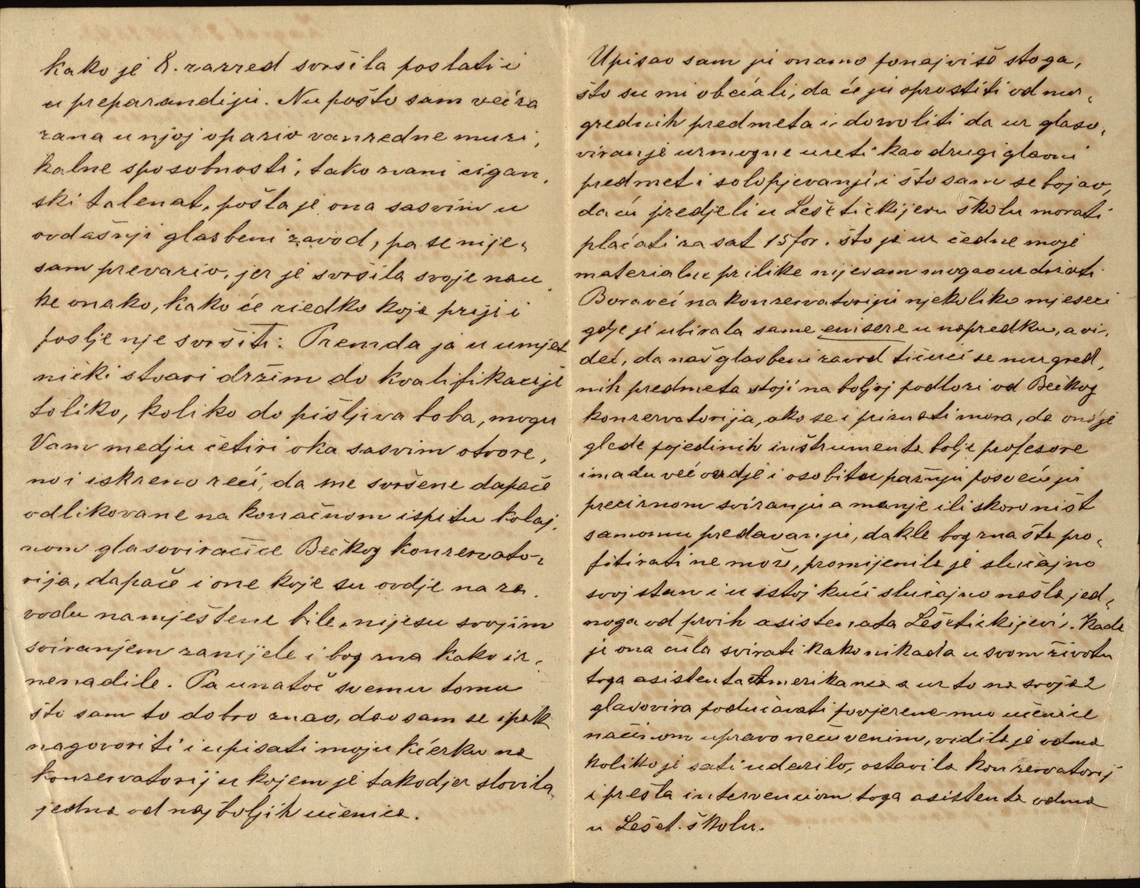 kako je 8. razred svršila poslati i
u preparandiju. No pošto sam već za
rana u njoj opazio vanredne muzi,
kalne sposobnosti, tako zvani cigan,
ski talenat, pošla je ona sasvim u
ovdašnji glasbeni zavod, pa se nije,
sam prevario, jer je svršila svoje nau
ke onako, kako će riedko koja prije i
poslje nje svršiti. Premda ja u umjet
nički stvari držim do kvalifikacije
toliko, koliko do pišljiva boba, mogu
Vam medju četiri oka sasvim otvore,
no i iskreno reći, da me svršene dapače
odlikovane na konačnom ispitu kolaj,
nom glasoviračice Bečkog konzervato-
rija, dapače i one koje su ovdje na za.
vodu namještene bile, nijesu svojim
sviranjem zanijele i bog zna kako iz,
nenadile. Pa unatoč svemu tomu
što sam to dobro znao, dao sam se ipak
nagovoriti i upisati moju kćerku na
konzervatorij u kojem je takodjer slovila
jedna od najboljih učenica.
Upisao sam ju onamo ponajviše stoga,
što su mi obećali, da će ju oprostiti od nuz,
grednih predmeta i dozvoliti da uz glaso,
viranje uzmogne uzeti kao drugi glavni
predmet i solopjevanje i što sam se bojao,
da ću ju redjeli u Lešetickijevu školu morati
plaćati za sat 15 for. što je uz čedne moje
materialne prilike nijesam mogao uzdržati.
Boraveć na konzervatoriju njekoliko mjeseci
gdje je ubirala same emisere u napredku, a vi,
deć, da naš glasbeni zavod tičući se nuzgred,
nih predmeta stoji na boljoj podlozi od Bečkog
konzervatorija, ako se i priznati mora, da onaj
glede pojedinih inštrumenta bolje profesore
imadu već ovdje i osobitu pažnju posvećuju
preciznom sviranju a manje ili skoro ništ
samomu predavanju, dakle bog zna šta pro,
fitirati ne može, promijenila je slučajno
svoj stan i u istoj kući slučajno našla jed,
noga od prvih asistenata Lešetickijevi. Kada
je ona čula svirati kako nikada u svom životu
toga asistenta Amerikanca a uz to na svoja 2
glasovira podučavati povjerene mu učenice
načinom upravo nečuvenim, vidila je odma
koliko je sati udarilo, ostavila konzervatorij
i prešla intervencijom toga asistenta odma
u Lešet. školu.